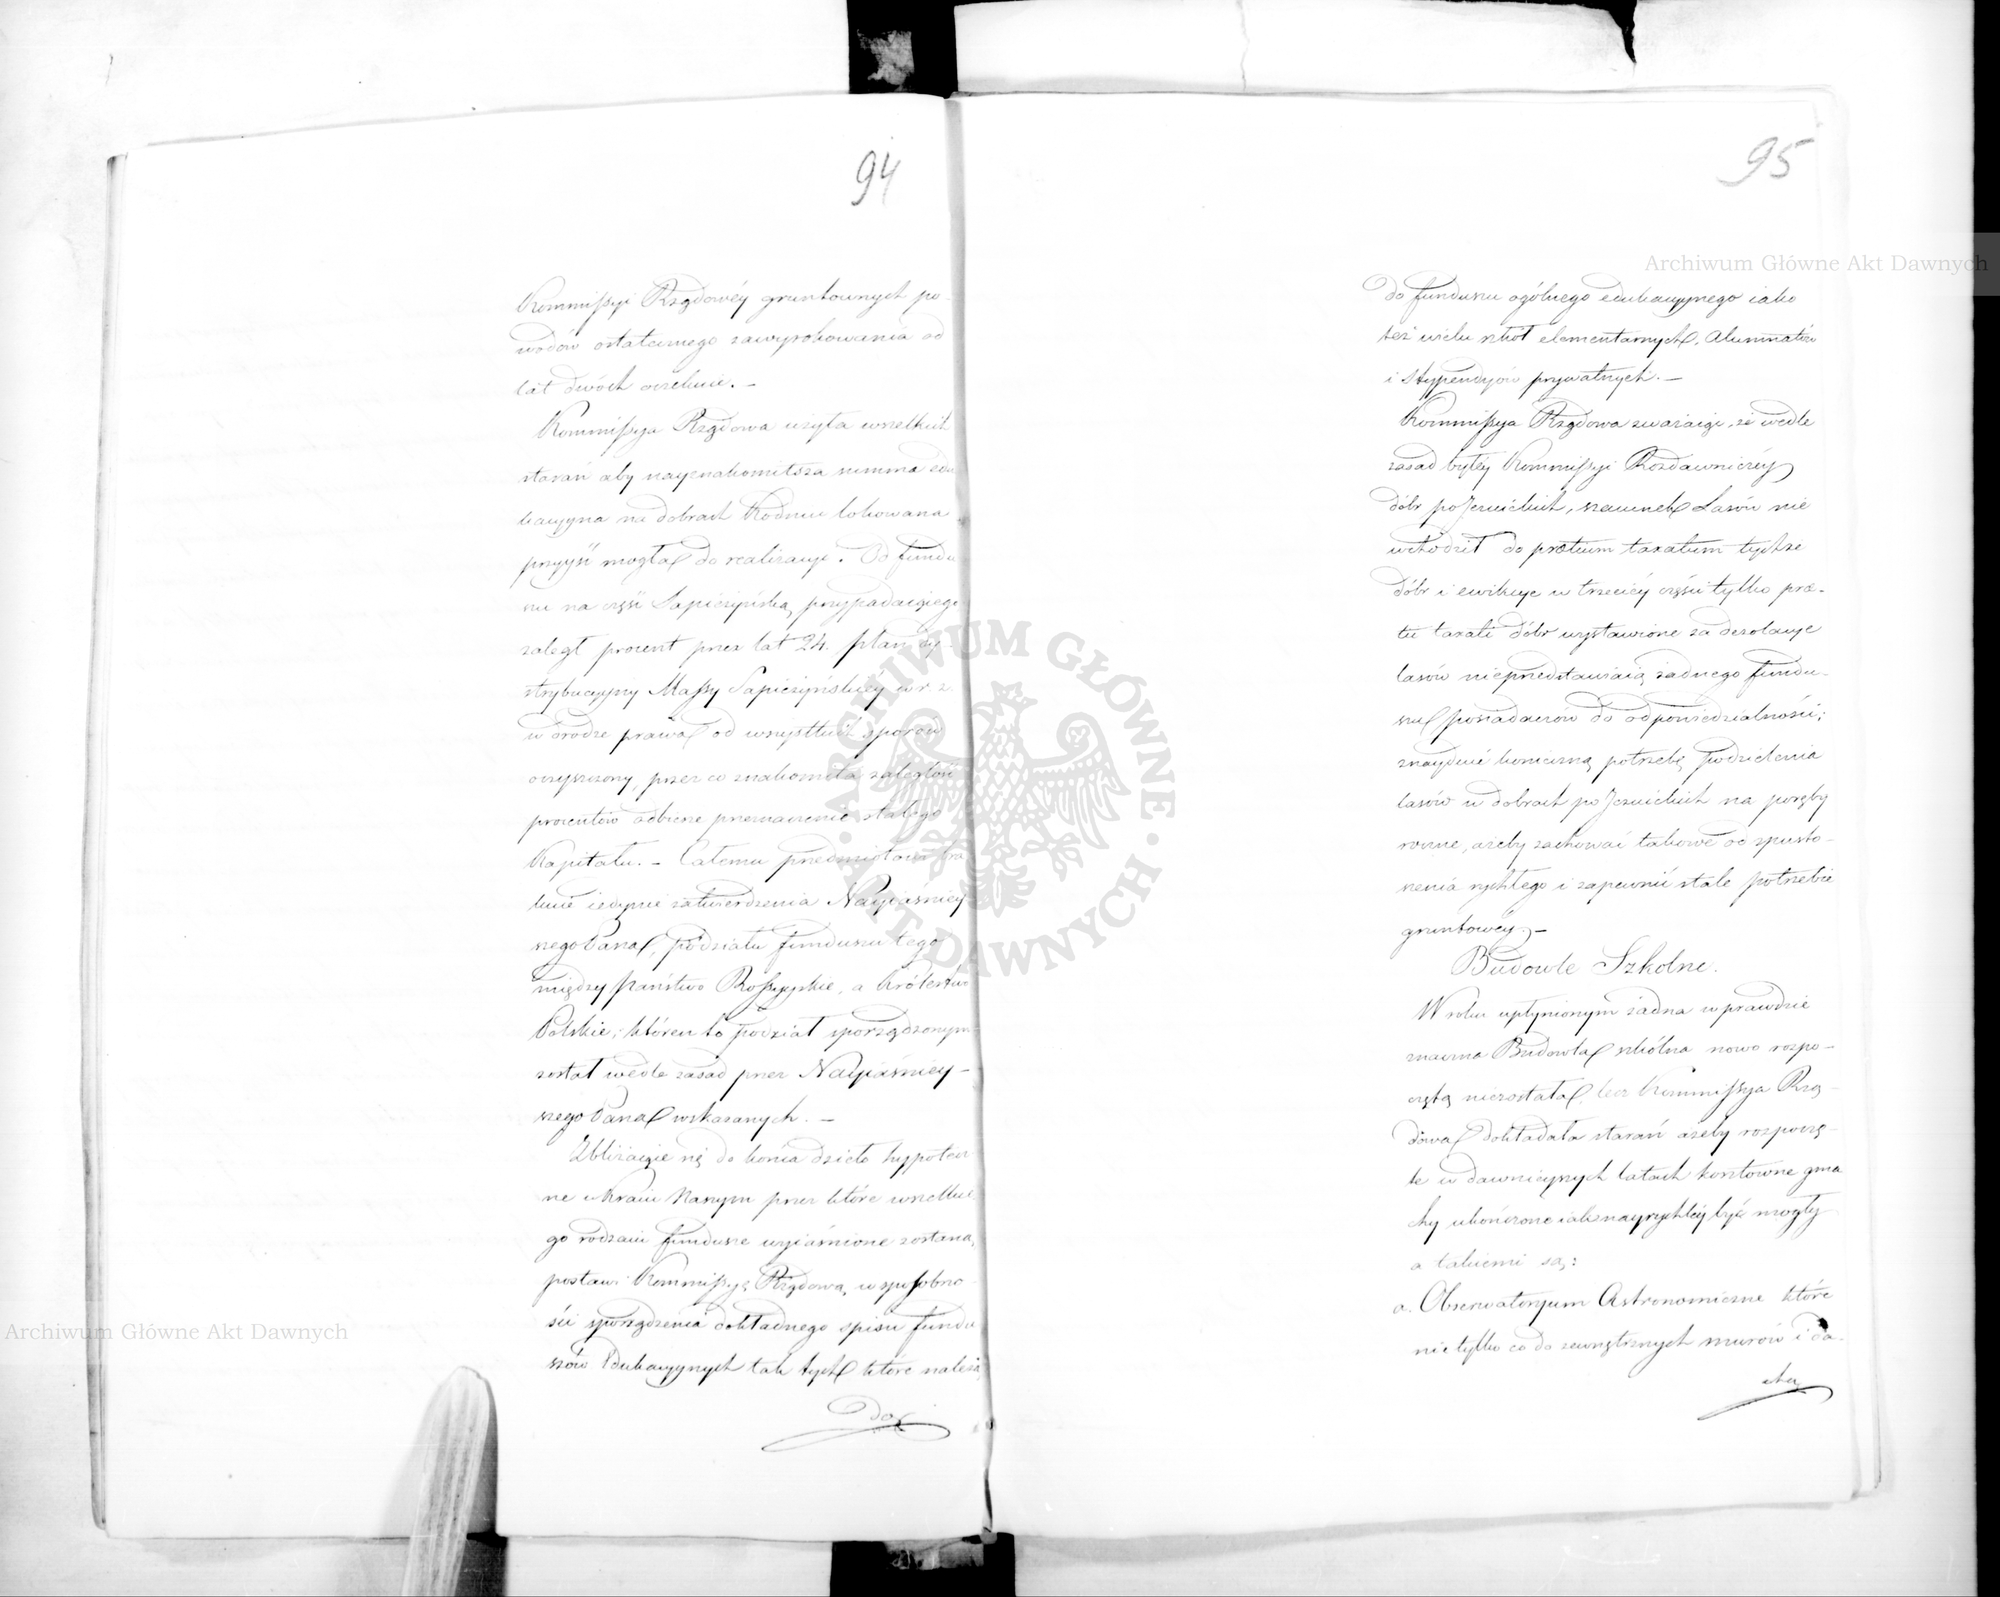 94
Kommissyi Rządowéy gruntownych po-
wodów ostatecznego zawyrokowania od
lat dwóch oczekuie. –
Kommissya Rządowa użyła wszelkich
starań aby nayznakomitsza summa edu
kacyyna na dobrach Kodniu lokowana
przyyść mogła do realizacyi. Od fundu
szu na część Sapieżyńską przypadaiącego
zaległ procent przez lat 24. plan dy-
strybucyyny Massy Sapieżyńskiey w r. z.
w drodze prawa od wszystkich sporów
oczyszczony, przez co znakomita zaległość
procentów odbierze przeznaczenie stałego
Kapitału. – Całemu przedmiotowi bra
kuie iedynie zatwierdzenia Nayiaśniey
szego Pana, podziału funduszu tego
między Państwo Rossyyskie, a Królestwo
Polskie; któren to podział sporządzonym
został wedle zasad przez Nayiaśniey-
szego Pana wskazanych. –
Zbliżaiące się do końca dzieło hypotecz
ne w Kraiu Naszym przez które wszelkie
go rodzaiu fundusze wyiaśnione zostaną,
postawi Kommissyę Rządową w sposobno
ści sporządzenia dokładnego spisu fundu
szów Edukacyynych tak tych które należą
Do
95
do funduszu ogólnego edukacyynego iako
też wielu szkół elementarnych, Alumnatów
i Stypendyów prywatnych. –
Kommissya Rządowa zważaiąc, że wedle
zasad byłéy Kommissyi Rozdawniczéy
dóbr poJezuickich, szacunek Lasów nie
wchodził do prætium taxatum tychże
dóbr i ewikcye w trzeciéy części tylko præ-
tii taxati dóbr wystawione za dezolacye
lasów nieprzedstawiaią żadnego fundu-
szu posiadaczów do odpowiedzialności;
znayduie konieczną potrzebę podzielenia
lasów w dobrach poJezuickich na poręby
roczne, ażeby zachować takowe od spusto-
szenia rychłego i zapewnić stale potrzebie
gruntowéy. –
Budowle Szkolne.
W roku upłynionym żadna wprawdzie
znaczna Budowla szkólna nowo rozpo-
czętą niezostała, lecz Kommissya Rzą-
dowa dokładała starań ażeby rozpoczę-
te w dawnieyszych latach kosztowne gma
chy ukończone iak nayrychléy być mogły
a takiemi są:
a. Obserwatoryum Astronomiczne które
nietylko co do zewnętrznych murów i da-
chu
Archiwum Główne Akt Dawnych
Archiwum Główne Akt Dawnych
ARCHIWUM GŁÓWNE · AKT DAWNYCH ·